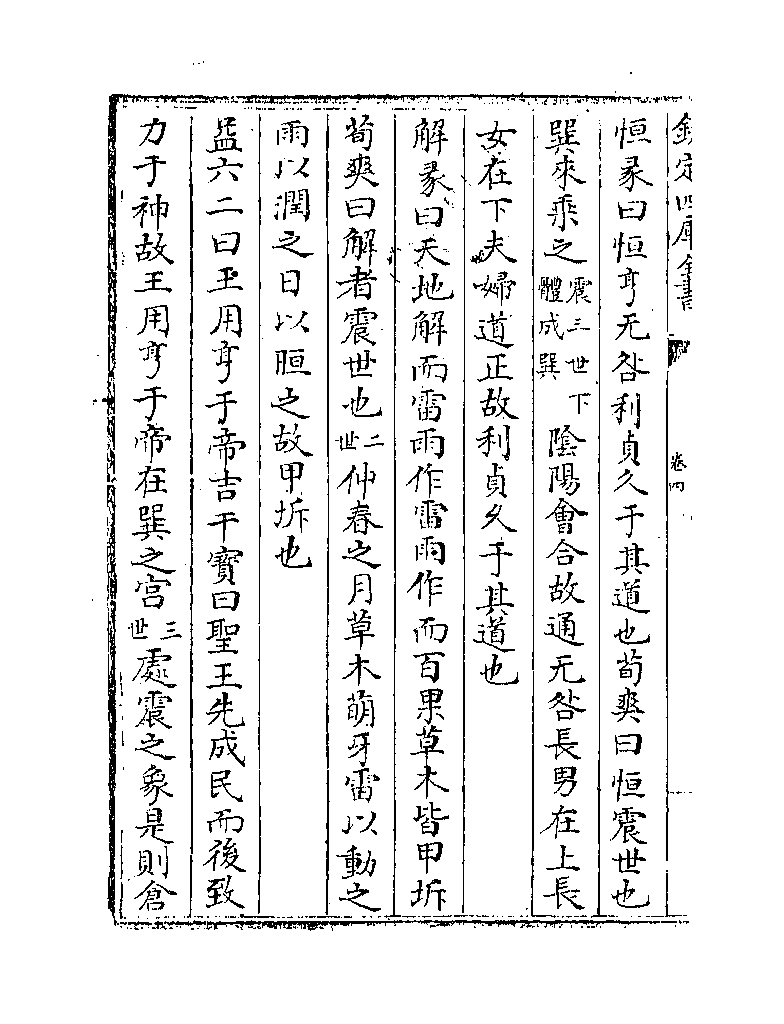 欽定四庫全書
卷四
恒彖曰恒亨无咎利貞久于其道也荀爽曰恒震世也
巽來乘之震三世下體成巽陰陽會合故通无咎長男在上長
女在下夫婦道正故利貞久于其道也
解彖曰天地解而雷雨作雷雨作而百果草木皆甲坼
荀爽曰解者震世也二世仲春之月草木萌牙雷以動之
雨以潤之日以烜之故甲坼也
益六二曰王用亨于帝吉干寶曰聖王先成民而後致
力于神故王用亨于帝在巽之宫三世處震之象是則倉